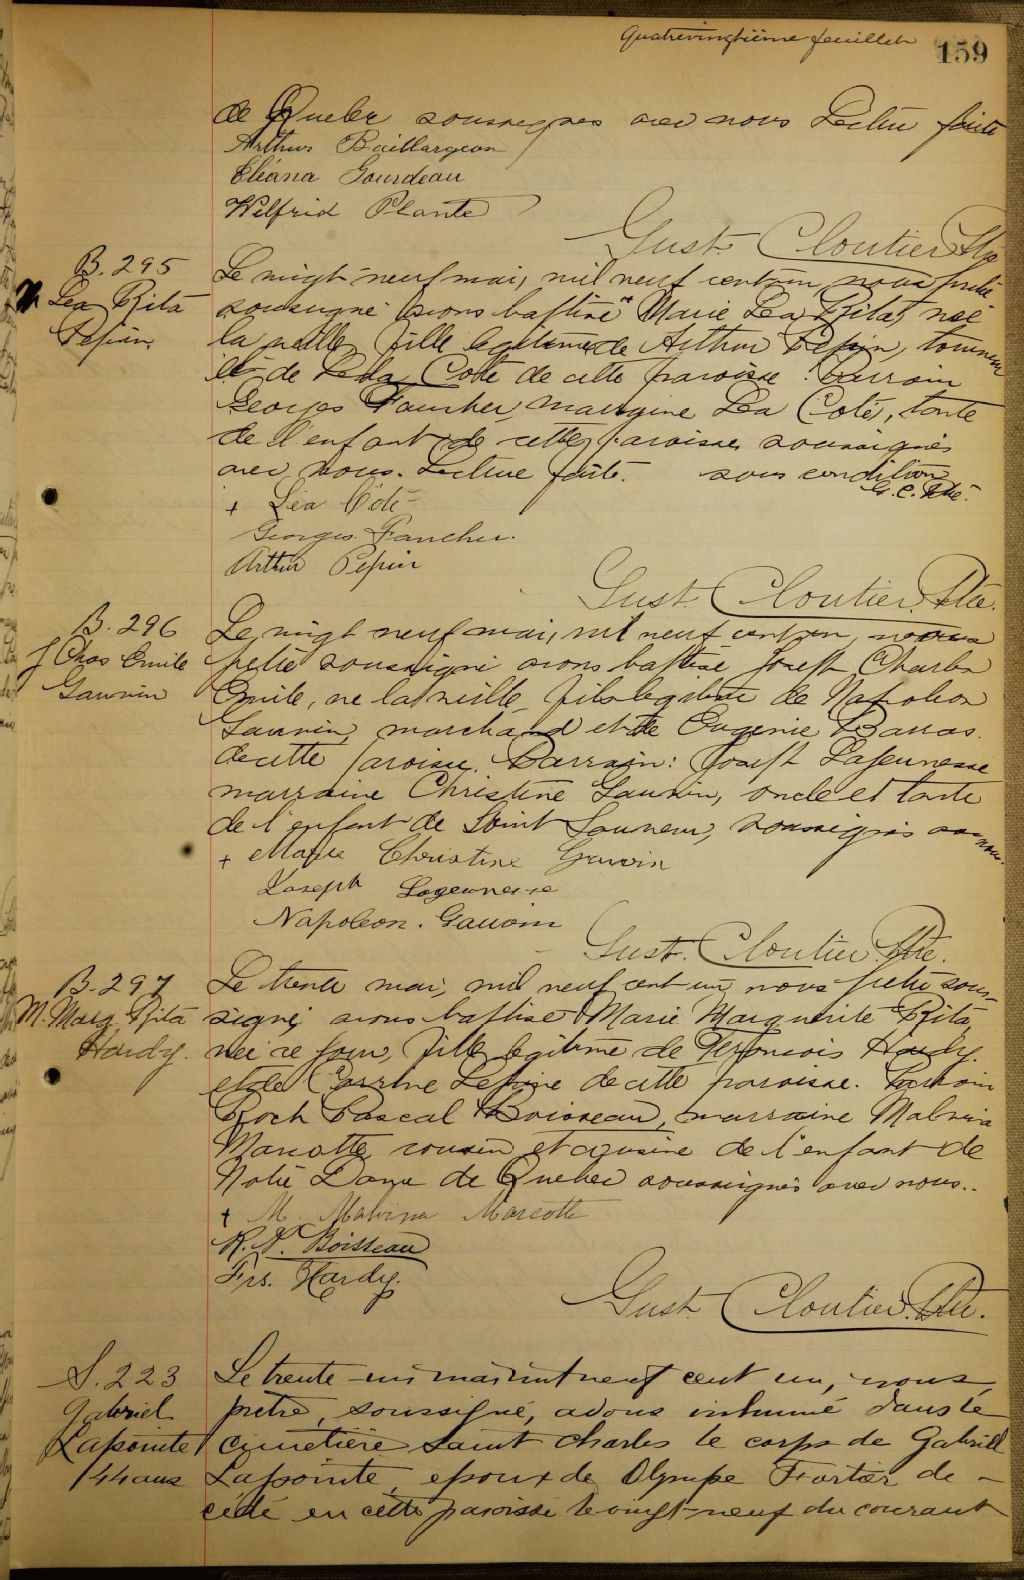 Quatrevingtième feuillet 159
de Quebec soussignes avec nous Lecture faite
Arthur Baillargeon
Eléana Gourdeau
Wilfrid Plante
Gust. Cloutier Ptre
B. 295
M Lea Rita
Pepin
Le vingt-neuf mai, mil neuf cent un nous pretre
soussigné avons baptisé Marie Lea Rita, neé
la veille, fille legitime de Arthur Pepin, tourneur
et de Leda Coté de cette paroisse. Parrain
Georges Faucher, marraine Lea Coté, tante
de l'enfant de cette paroisse soussignés
avec nous. Lecture faite. sous condition
G. C. Ptre.
+ Léa Côté
Georges Faucher.
Arthur Pepin
Gust. Cloutier Ptre.
B. 296
J Chas Emile
Gauvin
Le vingt neuf mai, mil neuf cent un, nous
pretre soussigné avons baptisé Joseph Charles
Emile, ne la veille, fils legitime de Napoleon
Gauvin, marchand et de Eugenie Barras
de cette paroisse. Parrain: Joseph Lajeunesse
marraine Christine Gauvin, oncle et tante
de l'enfant de Saint Sauveur, soussignés avec nous.
+ Marie Christine Gauvin
Joseph Lajeunesse
Napoleon. Gauvin
Gust. Cloutier Ptre.
B. 297
M. Marg Rita
Hardy.
Le trente mai, mil neuf cent un, nous pretre sous-
signé avons baptisé Marie Marguerite Rita,
neé ce jour, fille legitime de François Hardy
et de Corrine Lepine de cette paroisse. Parrain
Roch Pascal Boisseau, marraine Malvina
Marcotte, cousin et cousine de l'enfant de
Notre Dame de Quebec soussignés avec nous..
+ M. Malvina Marcotte
R. P. Boisseau
Frs. Hardy.
Gust. Cloutier Ptre.
S. 223
Gabriel
Lapointe
44 ans
Le trente-un mai mil neuf cent un, nous,
prêtre, soussigné, avons inhumé dans le
cimetière Saint Charles le corps de Gabriel
Lapointe, epoux de Olympe Fortier dé-
cédé en cette paroisse le vingt-neuf du courant